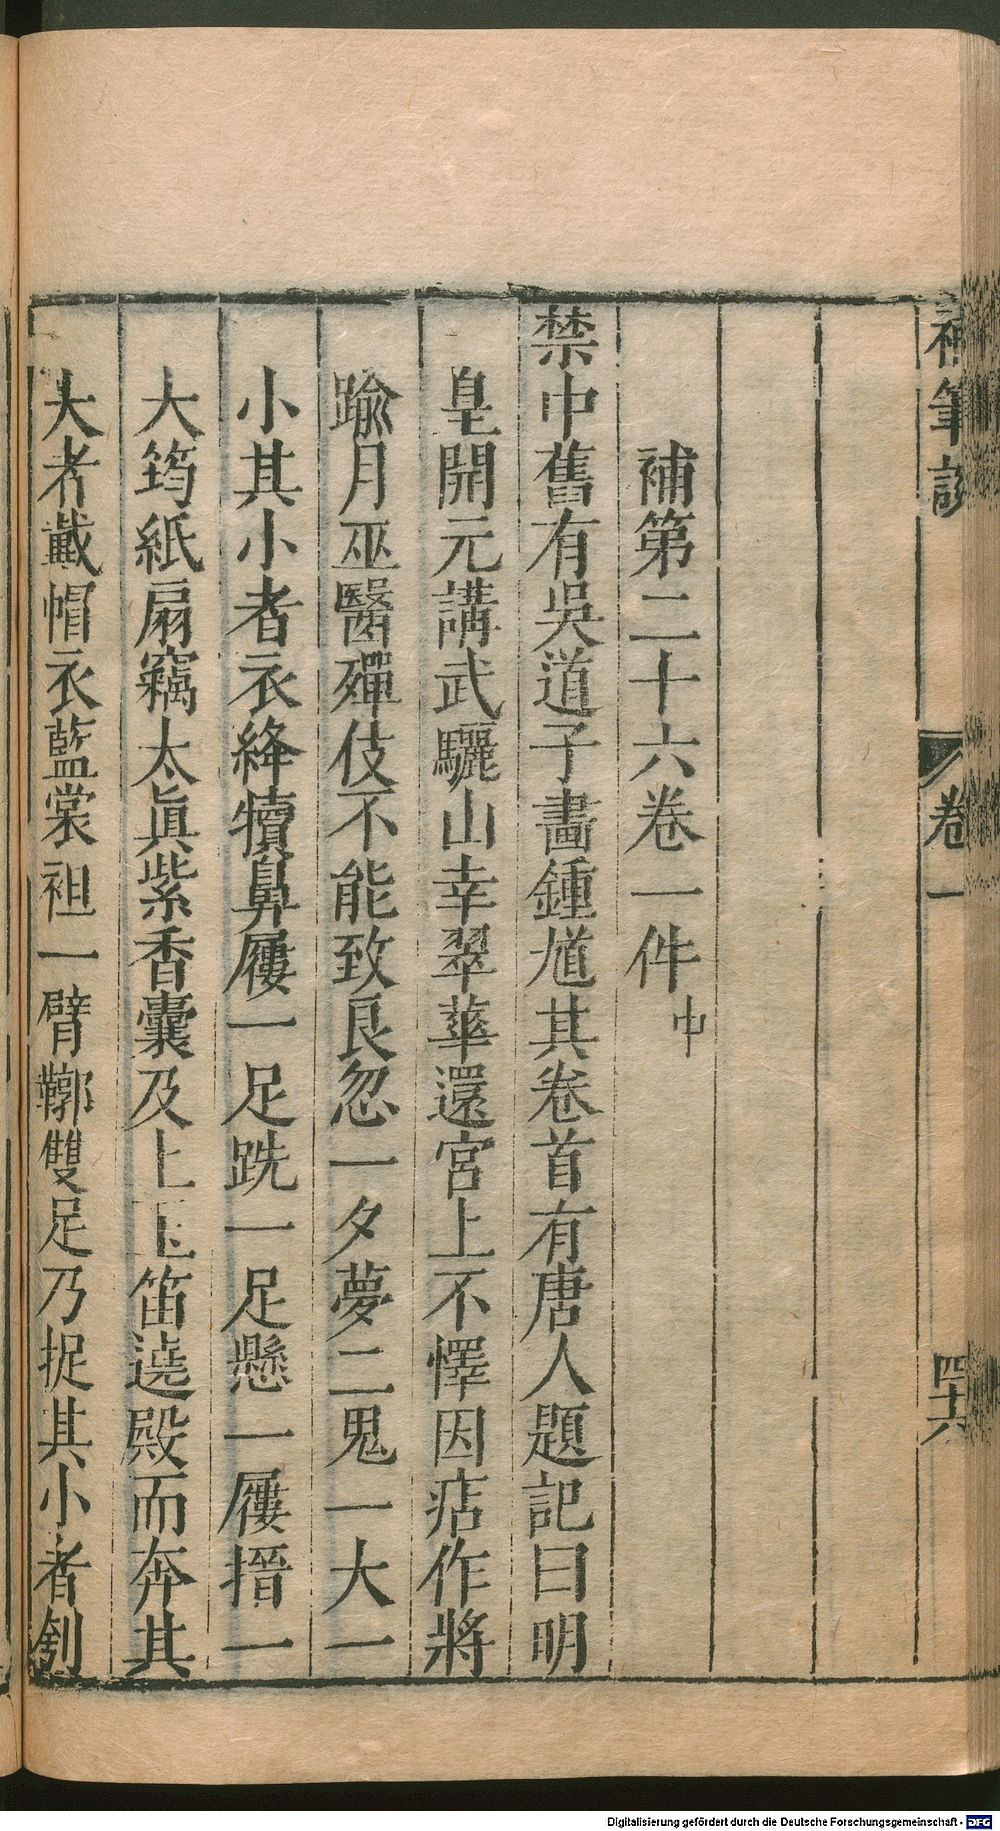 補筆談
卷一
四十六
補第二十六卷一件中
禁中舊有吳道子畫鍾馗其卷首有唐人題記曰明
皇開元講武驪山幸翠華還宮上不懌因痁作將
踰月巫醫殫伎不能致良忽一夕夢二鬼一大一
小其小者衣絳犢鼻屨一足跣一足懸一屨搢一
大筠紙扇竊太眞紫香囊及上玉笛遶殿而奔其
大者戴帽衣藍裳袒一臂鞹雙足乃捉其小者刳
Digitalisierung gefördert durch die Deutsche Forschungsgemeinschaft - DFG